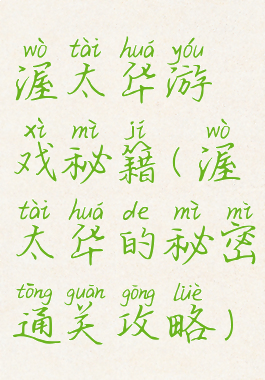 wò tài huá yóu
渥太华游
xì mì jí wò
戏秘籍(渥
tài huá de mì mì
太华的秘密
tōng guān gōng lüè
通关攻略)